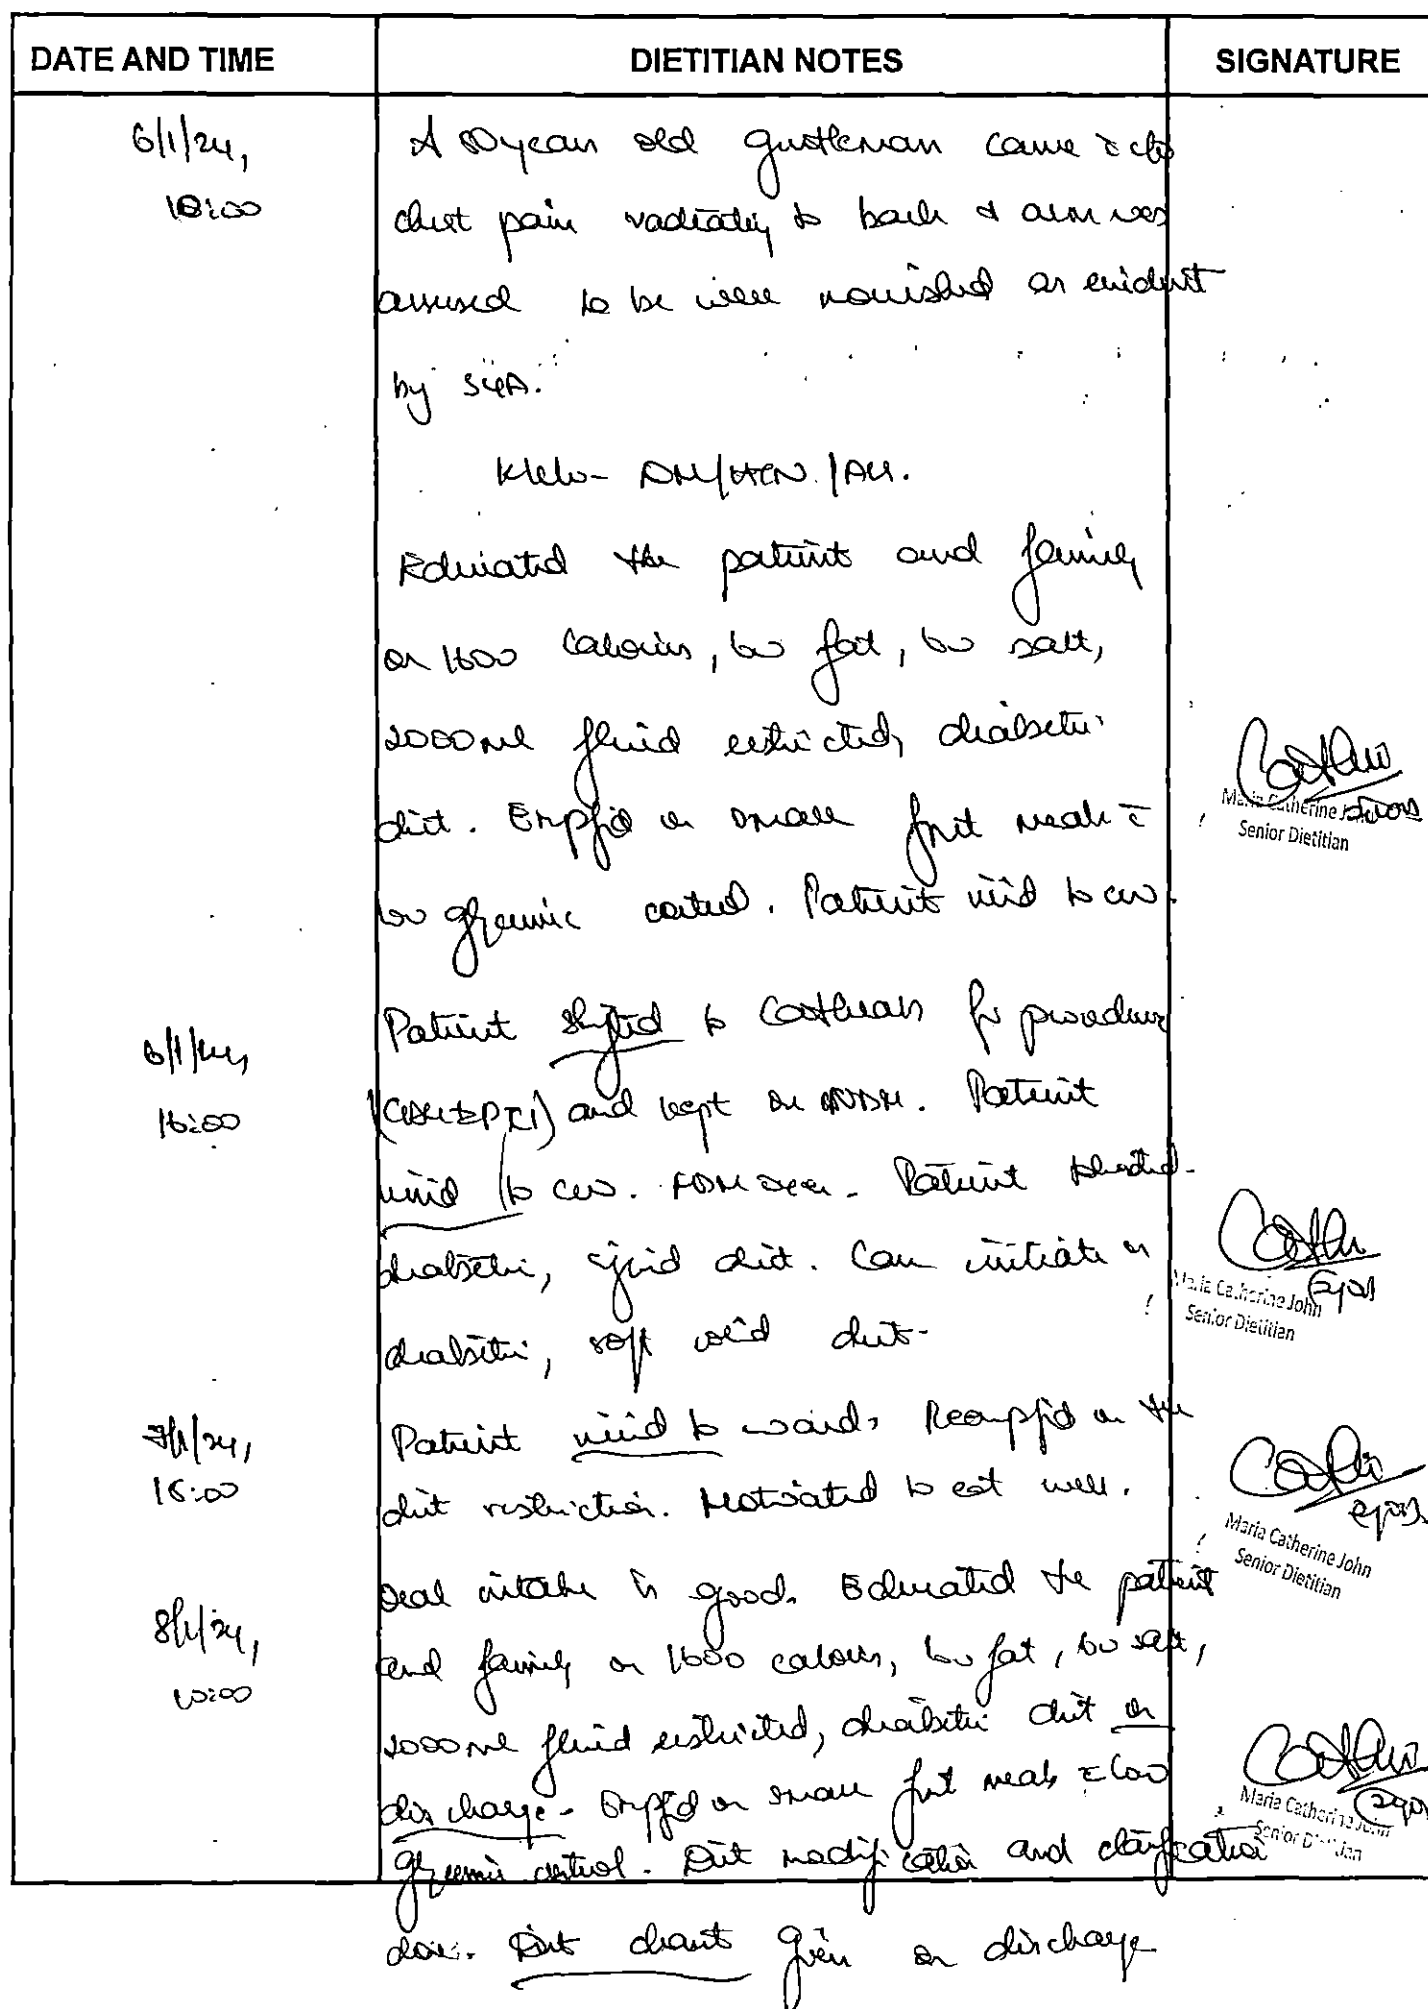 DATE AND TIME DIETITIAN NOTES SIGNATURE
6/1/24, A 80 year old gentleman came c̄ c/o
10:00 chest pain radiating to back & arm was
assessed to be well nourished as evident
by SGA.
K/c/o - DM/HTN/
Educated the patient and family
on 1600 calories, low fat, low salt,
2000ml fluid restricted, diabetic
diet. Emp'd on small frqt meals c̄
low glycemic control. Patient
Maria Catherine John
Senior Dietitian
6/1/24, Patient shifted to Cathlab for procedure
16:00 and kept on NBM. Patient
to CCU. Patient started
diabetic, liquid diet. Can initiate on
diabetic, soft solid diet.
Maria Catherine John
Senior Dietitian
7/1/24, Patient to ward. Reemp'd on the
16:00 diet restriction. Motivated to eat well.
Maria Catherine John
Senior Dietitian
8/1/24, Oral intake is good. Educated the patient
10:00 and family on 1600 calories, low fat, low salt,
2000ml fluid restricted, diabetic diet on
discharge. Emp'd on small frqt meals c̄ low
glycemic control. Diet modification and clarification
Maria Catherine John
Senior Dietitian
done. Diet chart given on discharge